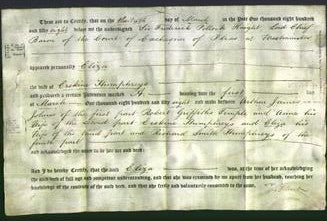 These are to Certify, that on the thirtyth day of March in the Year One thousand eight hundred
and fifty eight before me the undersigned Sir Frederick Pollock Knight Lord Chief
Baron of the Court of Exchequer of Pleas at Westminster
appeared personally Eliza
the wife of Erskine Humphreys
and produced a certain Indenture marked A bearing date the first day
of March One thousand eight hundred and fifty eight made between James
Johns of the first part Robert Griffiths Temple and Anna his
Wife of the second part Erskine Humphreys and Eliza his
Wife of the third part and Smith Humphreys of the
fourth part
and acknowledged the same to be her act and deed:
And I do hereby Certify, that the said Eliza was, at the time of her acknowledging
the said Deed, of full age and competent understanding, and that she was examined by me apart from her husband, touching her
knowledge of the contents of the said Deed, and that she freely and voluntarily consented to the same.